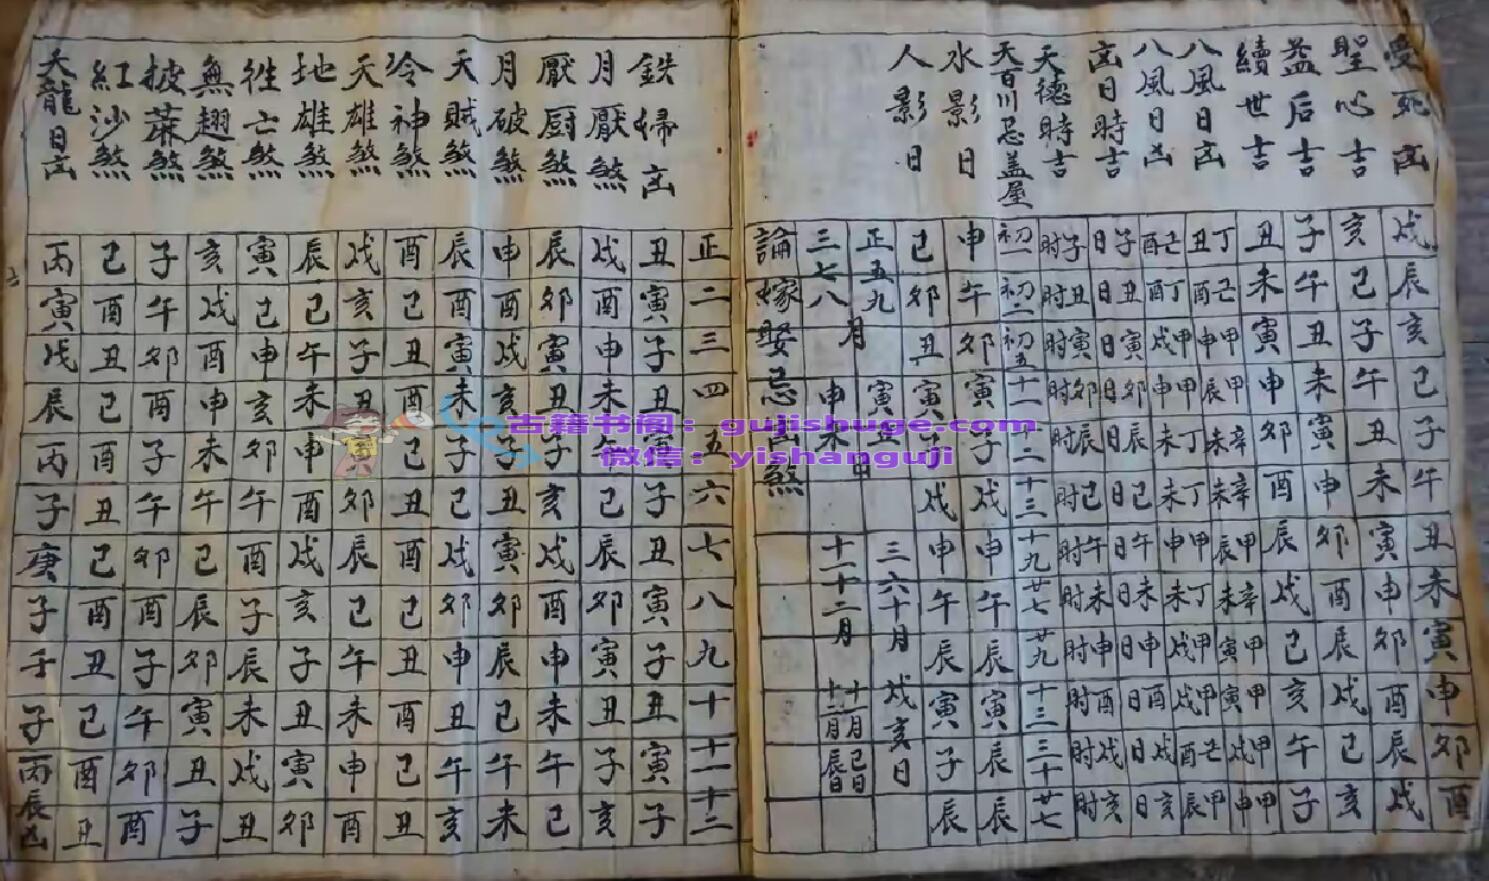 受死凶 戌辰亥巳子午丑未寅申卯酉
聖心吉 亥巳子午丑未寅申卯酉辰戌
益后吉 子午丑未寅申卯酉辰戌巳亥
續世吉 丑未寅申卯酉辰戌巳亥午子
八風日凶 丁丑 己酉 甲申 甲辰 辛未 辛未 甲辰 辛未 甲寅 甲寅 甲戌 甲申
八風日凶 己酉 丁酉 甲戌 甲申 丁未 丁未 甲申 丁未 甲戌 甲戌 己酉 甲辰
凶日時吉 子日 丑日 寅日 卯日 辰日 巳日 午日 未日 申日 酉日 戌日 亥日
天德時吉 子时 丑时 寅时 卯时 辰时 巳时 午时 未时 申时 酉时 戌时 亥时
天百川忌盖屋 初一 初二 初五 十一 十二 十三 十九 廿七 廿九 十三 三十 廿七
水影日 申午卯寅子戌申午辰寅辰辰
人影日 巳卯丑寅子戌申午辰寅子辰
正五九月 寅丑日 三六十月戌亥日
三七八月 申未日 十一十二月 十一月巳日 十二月辰日
論嫁娶忌凶煞
正二三四五六七八九十十一十二
鉄婦凶 丑寅子丑寅子丑寅子丑寅子
月厭煞 戌酉申未午巳辰卯寅丑子亥
厭厨煞 辰卯寅丑子亥戌酉申未午巳
月破煞 申酉戌亥子丑寅卯辰巳午未
天賊煞 辰酉寅未子巳戌卯申丑午亥
冷神煞 酉巳丑酉巳丑酉巳丑酉巳丑
天雄煞 戌亥子丑寅卯辰巳午未申酉
地雄煞 辰巳午未申酉戌亥子丑寅卯
徃亡煞 寅巳申亥卯午酉子辰未戌丑
無翹煞 亥戌酉申未午巳辰卯寅丑子
披蔴煞 子午卯酉子午卯酉子午卯酉
紅沙煞 巳酉丑巳酉丑巳酉丑巳酉丑
天龍日凶 丙寅戊辰丙子庚子壬子丙辰凶
古籍书阁：gujishuge.com
微信：yishanguji